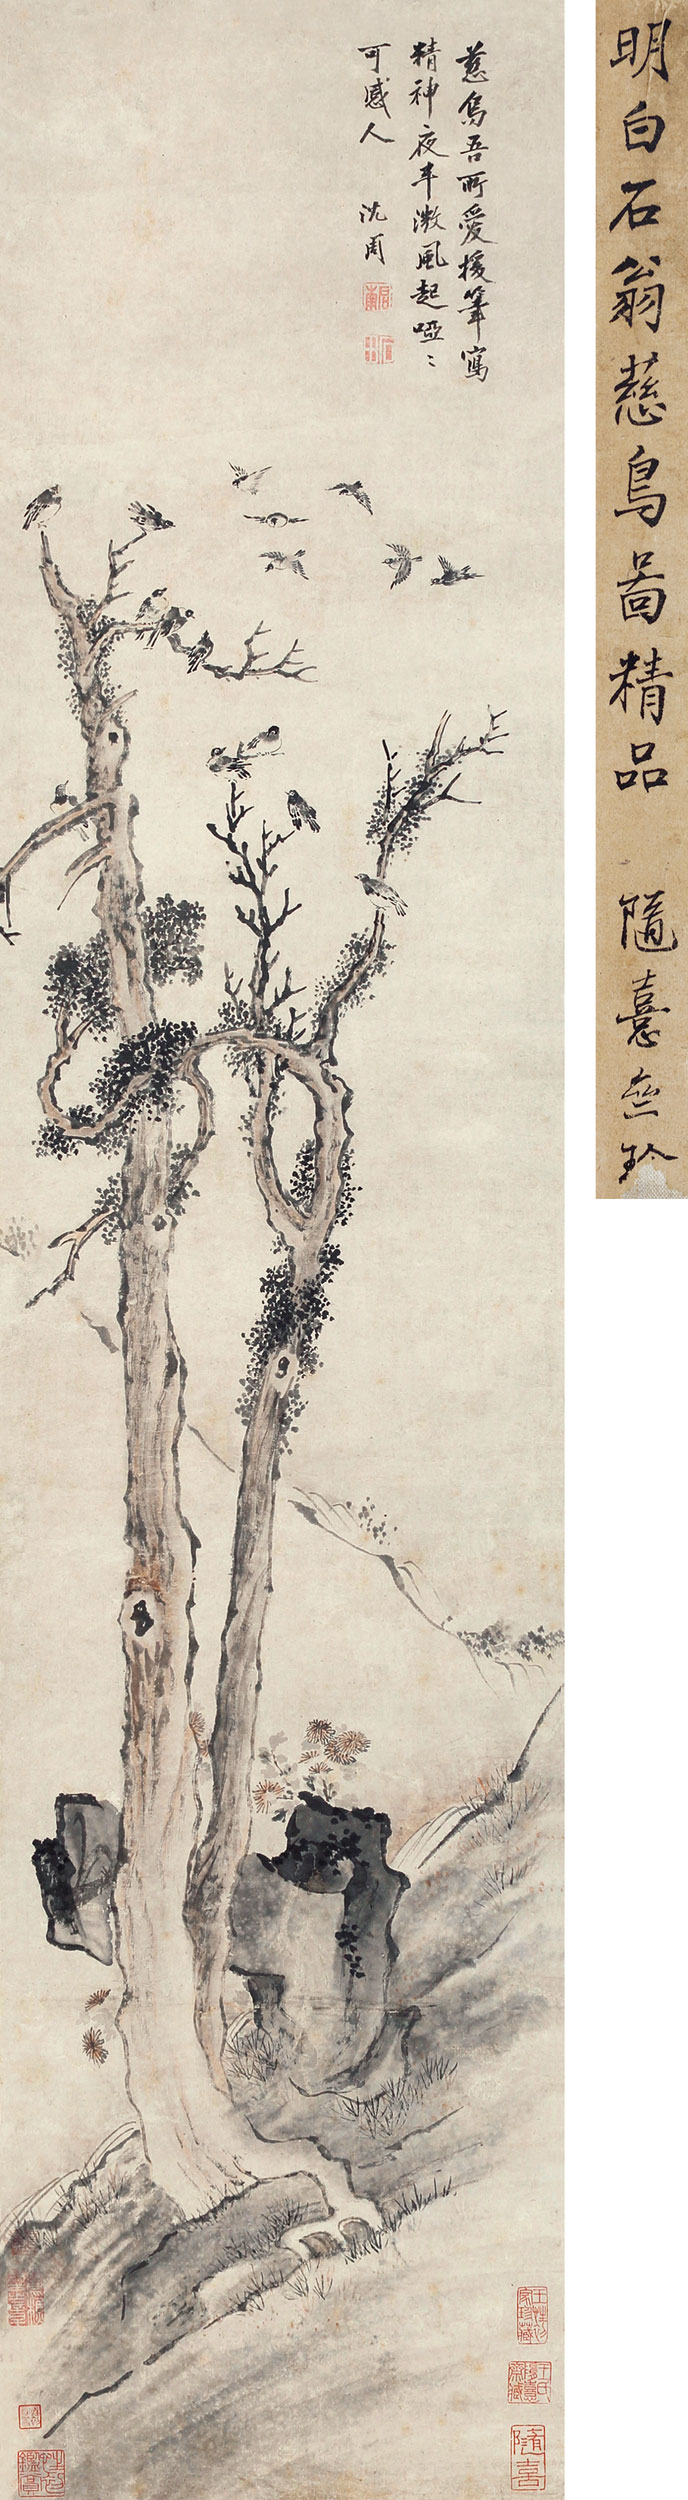 慈烏吾所愛援筆寫
精神夜半漵風起啞〻
可感人
沈周
明白石翁慈烏啚精品
隨喜盦珍
隨喜